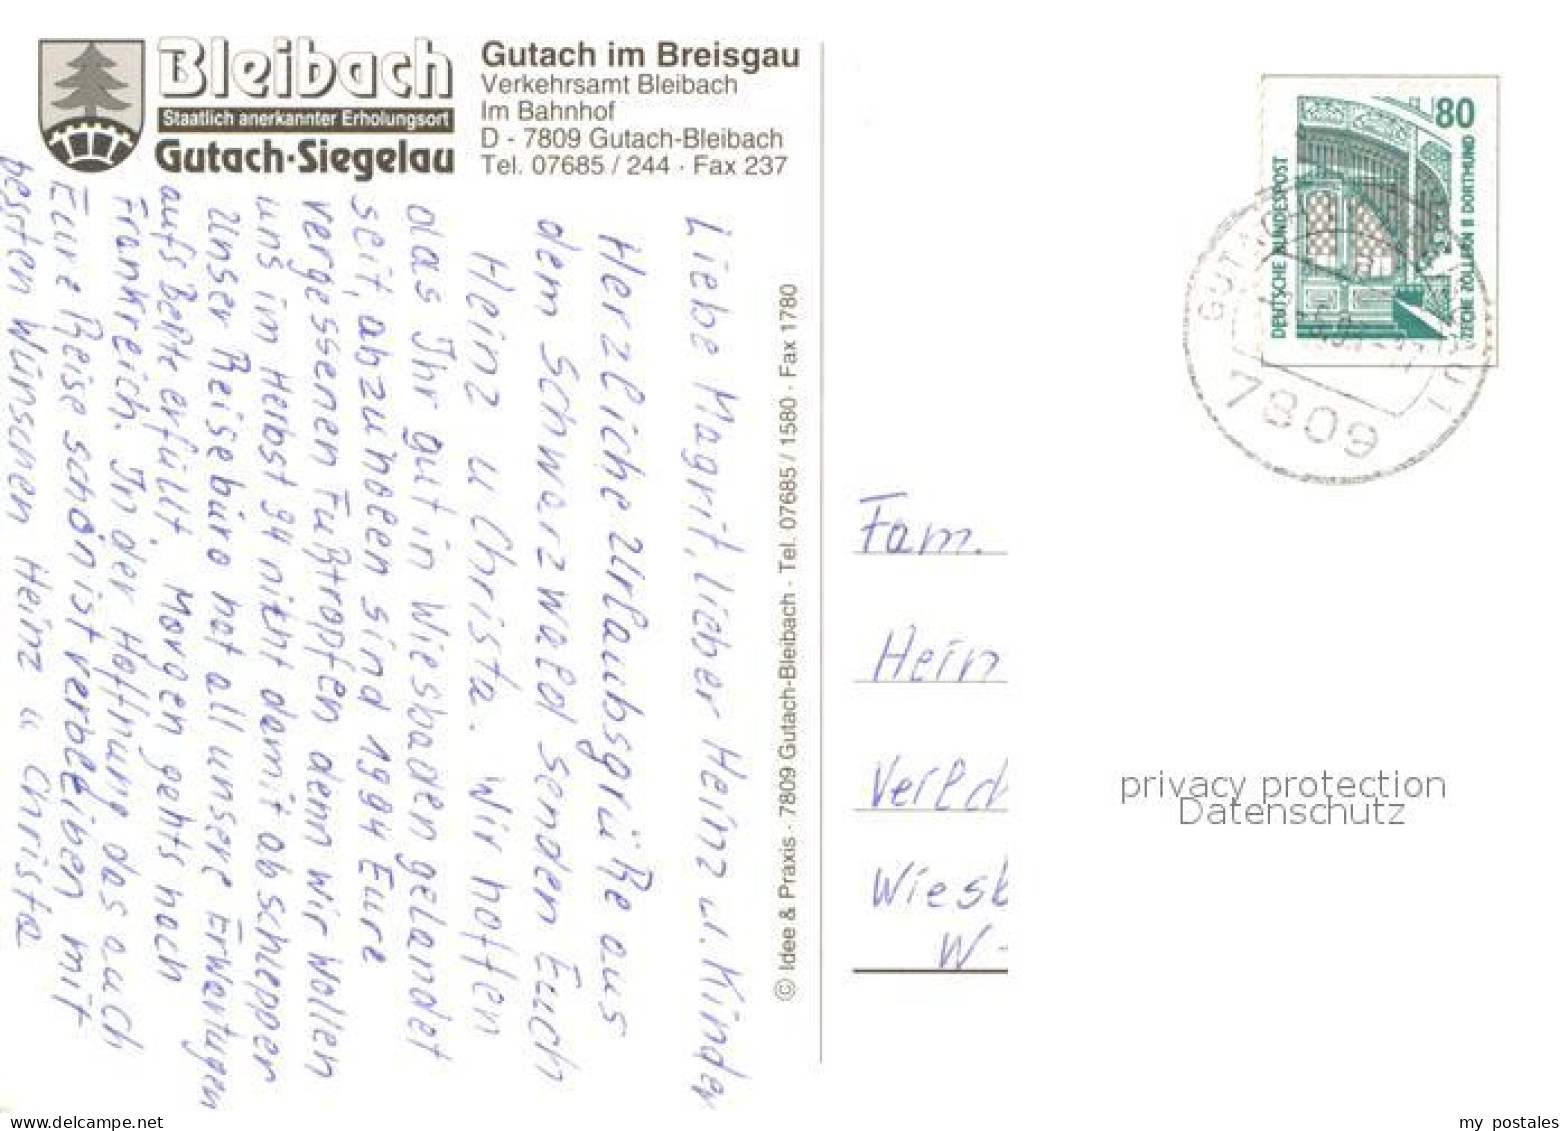 Bleibach
Staatlich anerkannter Erholungsort
Gutach-Siegelau
Gutach im Breisgau
Verkehrsamt Bleibach
Im Bahnhof
D - 7809 Gutach-Bleibach
Tel. 07685 / 244 · Fax 237
Liebe Magrit, lieber Heinz u. Kinder
Herzliche Urlaubsgrüße aus
dem Schwarzwald senden Euch
Heinz u Christa. Wir hoffen
das Ihr gut in Wiesbaden gelandet
seit, abzuholen sind 1994 Eure
vergessenen Fußtropfen denn wir wollen
uns im Herbst 94 nicht damit abschlepper
Unser Reisebüro hat all unsere Erwartugen
aufs Beste erfüllt. Morgen gehts nach
Frankreich. In der Hoffnung das auch
Eure Reise schön ist verbleiben mit
besten Wünschen Heinz u Christa
© Idee & Praxis · 7809 Gutach-Bleibach · Tel. 07685 / 1580 · Fax 1780
80
DEUTSCHE BUNDESPOST
ZECHE ZOLLERN II DORTMUND
GUTACH
7809
Fam.
Hein
Verld
Wiesb
W-
privacy protection
Datenschutz
my postales